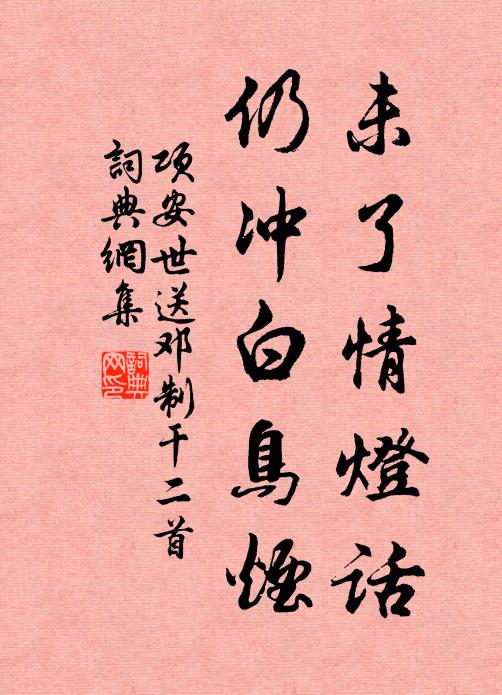 未了情燈话
仍冲白鳥煙
项安世送邓制干二首
詞典網集
詞典网印